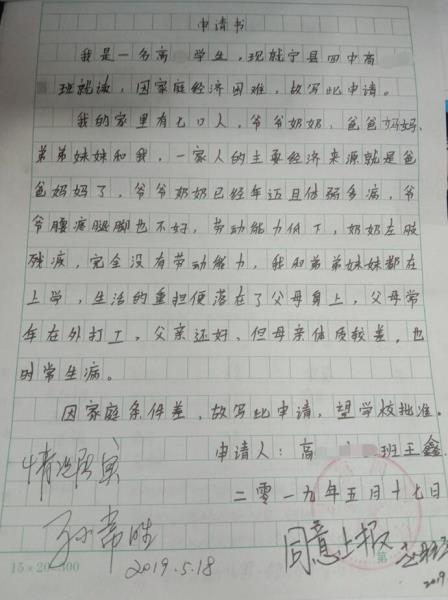 申请书
我是一名高 学生，现就宁县四中高
班就读，因家庭经济困难，故写此申请。
我的家里有七口人，爷爷奶奶、爸爸妈妈、
弟弟妹妹和我，一家人的主要经济来源就是爸
爸妈妈了，爷爷奶奶已经年迈且体弱多病，爷
爷腰疼腿脚也不好，劳动能力低下，奶奶左肢
残疾，完全没有劳动能力，我和弟弟妹妹都在
上学，生活的重担便落在了父母身上，父母常
年在外打工，父亲还好，但母亲体质较差，也
时常生病。
因家庭条件差，故写此申请，望学校批准。
申请人：高 班王鑫
二零一九年五月十七日
情况属实
2019.5.18
同意上报
15×20=300
第
2019